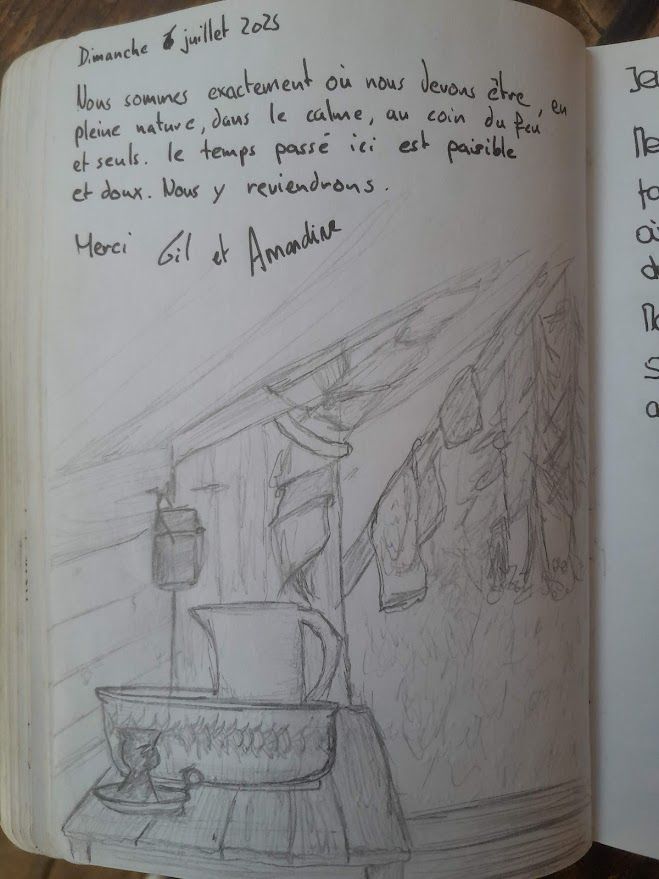 Dimanche 6 juillet 2025
Nous sommes exactement où nous devons être, en
pleine nature, dans le calme, au coin du feu
et seuls. le temps passé ici est paisible
et doux. Nous y reviendrons.
Merci Gil et Amandine